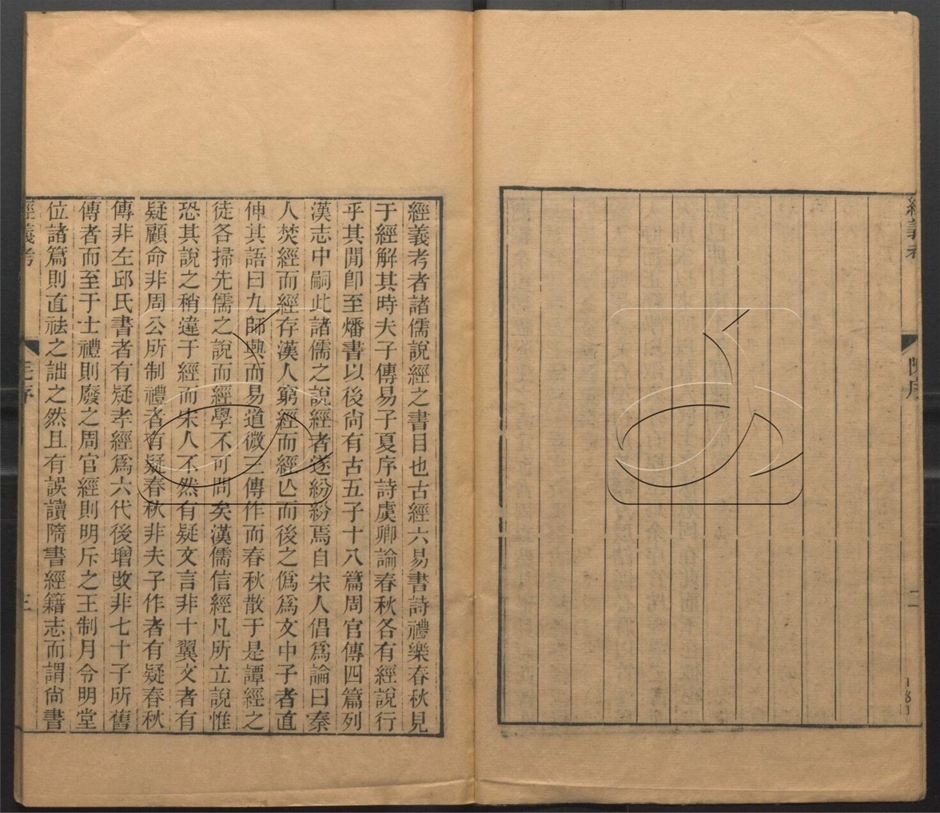 經義考
陳序
二
經義考者諸儒說經之書目也古經六易書詩禮樂春秋見
于經解其時夫子傳易子夏序詩虞卿論春秋各有經說行
乎其閒卽至燔書以後尙有古五子十八篇周官傳四篇列
漢志中嗣此諸儒之說經者遂紛紛焉自宋人倡爲論曰秦
人焚經而經存漢人窮經而經亾而後之僞爲文中子者直
伸其語曰九師興而易道微三傳作而春秋散于是譚經之
徒各掃先儒之說而經學不可問矣漢儒信經凡所立說惟
恐其說之稍違于經而宋人不然有疑文言非十翼文者有
疑顧命非周公所制禮者有疑春秋非夫子作者有疑春秋
傳非左邱氏書者有疑孝經爲六代後增攺非七十子所舊
傳者而至于士禮則廢之周官經則明斥之王制月令明堂
位諸篇則直祛之詘之然且有誤讀隋書經籍志而謂尙書
經義考
毛序
三